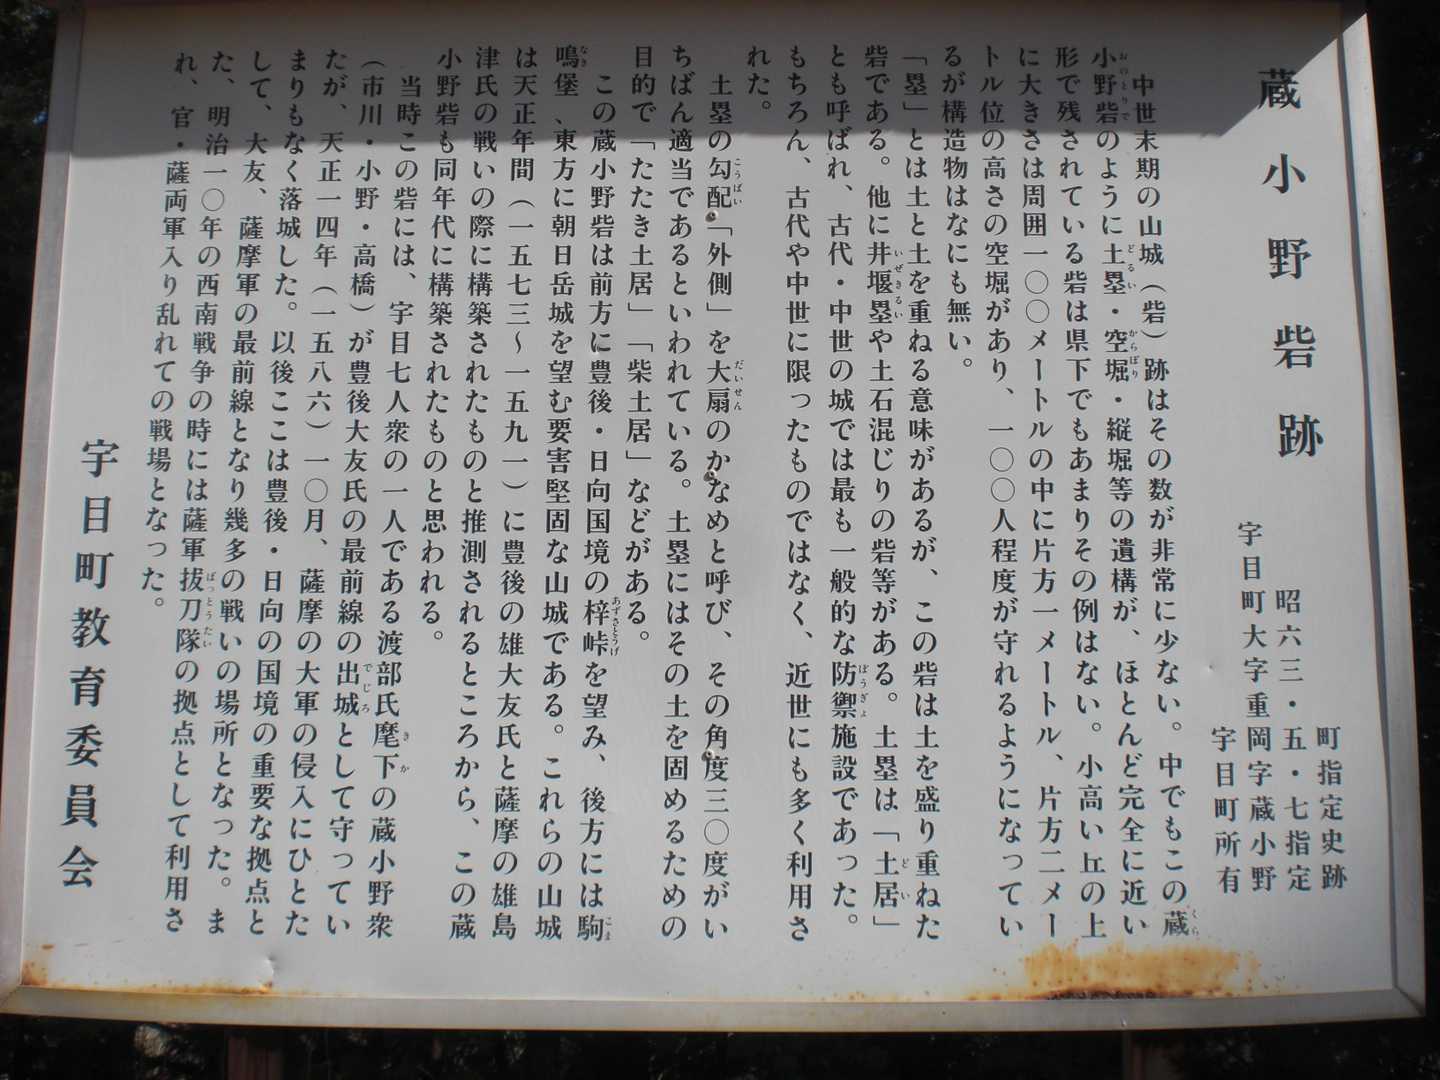 蔵小野砦跡
町指定史跡
昭六三・五・七指定
宇目町大字重岡字蔵小野
宇目町所有
中世末期の山城（砦）跡はその数が非常に少ない。中でもこの蔵
小野砦のように土塁・空堀・縦堀等の遺構が、ほとんど完全に近い
形で残されている砦は県下でもあまりその例はない。小高い丘の上
に大きさは周囲一〇〇メートルの中に片方一メートル、片方二メー
トル位の高さの空堀があり、一〇〇人程度が守れるようになってい
るが構造物はなにも無い。
「塁」とは土と土を重ねる意味があるが、この砦は土を盛り重ねた
砦である。他に井堰塁や土石混じりの砦等がある。土塁は「土居」
とも呼ばれ、古代・中世の城では最も一般的な防禦施設であった。
もちろん、古代や中世に限ったものではなく、近世にも多く利用さ
れた。
土塁の勾配「外側」を大扇のかなめと呼び、その角度三〇度がい
ちばん適当であるといわれている。土塁にはその土を固めるための
目的で「たたき土居」「柴土居」などがある。
この蔵小野砦は前方に豊後・日向国境の梓峠を望み、後方には駒
鳴堡、東方に朝日岳城を望む要害堅固な山城である。これらの山城
は天正年間（一五七三～一五九一）に豊後の雄大友氏と薩摩の雄島
津氏の戦いの際に構築されたものと推測されるところから、この蔵
小野砦も同年代に構築されたものと思われる。
当時この砦には、宇目七人衆の一人である渡部氏麾下の蔵小野衆
（市川・小野・高橋）が豊後大友氏の最前線の出城として守ってい
たが、天正一四年（一五八六）一〇月、薩摩の大軍の侵入にひとた
まりもなく落城した。以後ここは豊後・日向の国境の重要な拠点と
して、大友、薩摩軍の最前線となり幾多の戦いの場所となった。ま
た、明治一〇年の西南戦争の時には薩軍抜刀隊の拠点として利用さ
れ、官・薩両軍入り乱れての戦場となった。
宇目町教育委員会